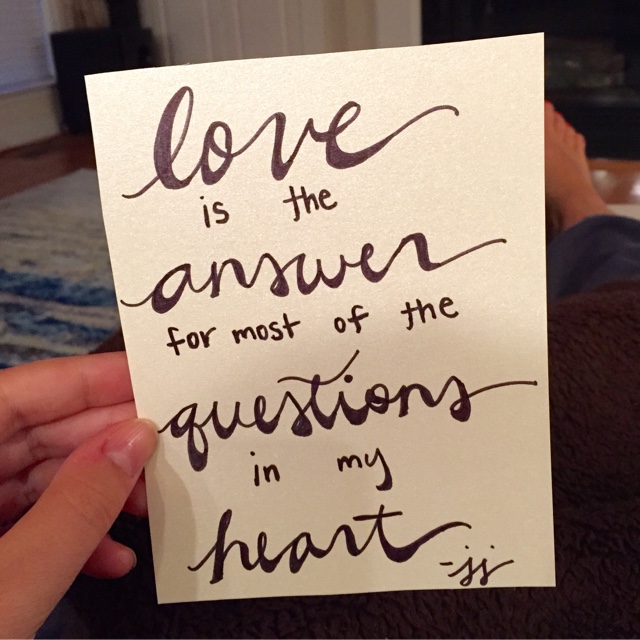 love
is the
answer
for most of the
questions
in my
heart
-jj